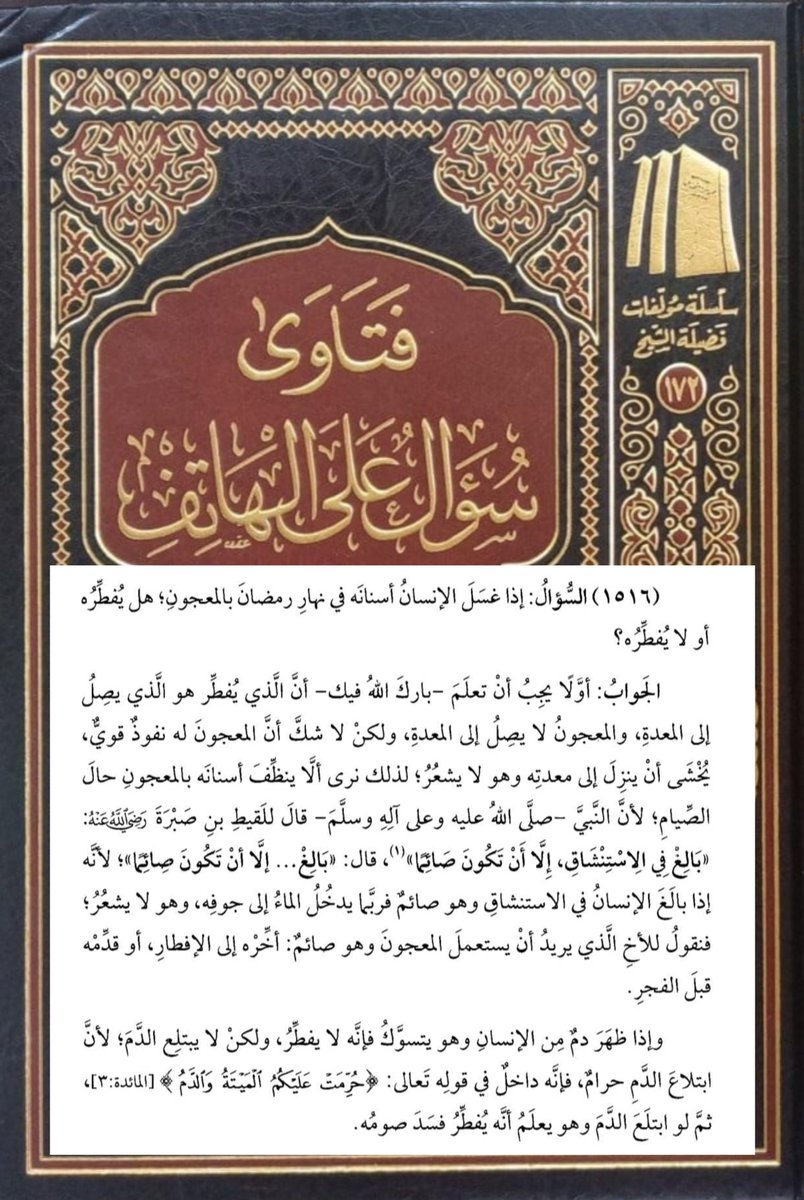 سلسلة مؤلفات
فضيلة الشيخ
١٧٢
فَتَاوَى
سُؤَالٌ عَلَى الهَاتِفِ
(١٥١٦) السُّؤالُ: إذا غسَلَ الإنسانُ أسنانَه في نهارِ رمضانَ بالمعجونِ؛ هل يُفطِّرُه
أو لا يُفطِّرُه؟
الجَوابُ: أوَّلًا يجِبُ أنْ تعلَمَ –باركَ اللهُ فيك– أنَّ الَّذي يُفطِّر هو الَّذي يصِلُ
إلى المعدةِ، والمعجونُ لا يصِلُ إلى المعدةِ، ولكنْ لا شكَّ أنَّ المعجونَ له نفوذٌ قويٌّ،
يُخْشَى أنْ ينزِلَ إلى معدتِه وهو لا يشعُرُ؛ لذلك نرى ألَّا ينظِّفَ أسنانَه بالمعجونِ حالَ
الصِّيامِ؛ لأنَّ النَّبيَّ –صلَّى اللهُ عليه وعلى آلِهِ وسلَّمَ– قالَ للَقيطِ بنِ صَبْرَةَ رَضِيَ اللَّهُ عَنْهُ:
«بَالِغْ فِي الِاسْتِنْشَاقِ، إِلَّا أَنْ تَكُونَ صَائِمًا»(١)، قال: «بَالِغْ... إلَّا أنْ تَكُونَ صِائِمًا»؛ لأنَّه
إذا بالَغَ الإنسانُ في الاستنشاقِ وهو صائمٌ فربَّما يدخُلُ الماءُ إلى جوفِه، وهو لا يشعُرُ؛
فنقولُ للأخِ الَّذي يريدُ أنْ يستعملَ المعجونَ وهو صائمٌ: أخِّرْه إلى الإفطارِ، أو قدِّمْه
قبلَ الفجرِ.
وإذا ظهَرَ دمٌ مِن الإنسانِ وهو يتسوَّكُ فإنَّه لا يفطِّرُ، ولكنْ لا يبتلِعِ الدَّمَ؛ لأنَّ
ابتلاعَ الدَّمِ حرامٌ، فإنَّه داخلٌ في قولِه تَعالى: ﴿حُرِّمَتْ عَلَيْكُمُ ٱلْمَيْتَةُ وَٱلدَّمُ﴾ [المائدة:٣]،
ثمَّ لو ابتلَعَ الدَّمَ وهو يعلَمُ أنَّه يُفطِّرُ فسَدَ صومُه.